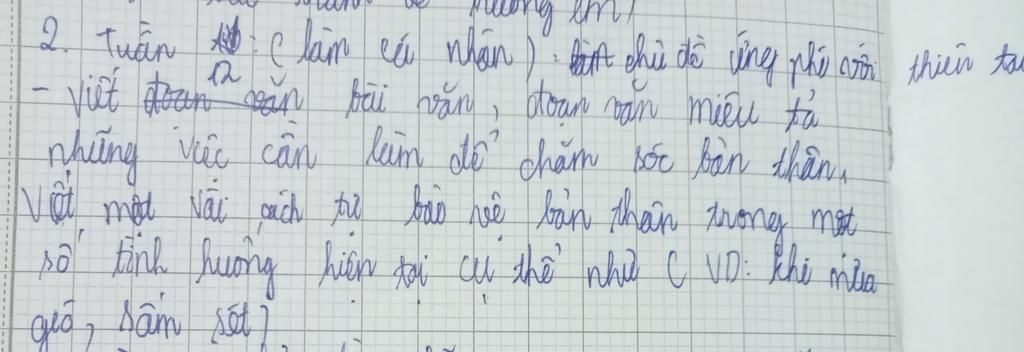 2. Tuần 12: (làm cá nhân). chủ đề ứng phó với thiên ta
- Viết đoạn văn bài văn, đoạn văn miêu tả
những việc cần làm để chăm sóc bản thân,
Viết một vài cách tự bảo vệ bản thân trong một
số tình huống hiện tại cụ thể như (VD: khi mưa
gió, sấm sét)